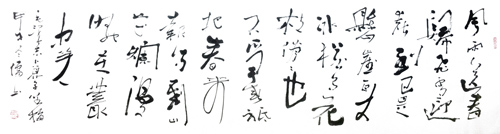 风雨送春
归飞雪迎
春到已是
悬崖百丈
冰犹有花
枝俏俏也
不争春只
把春来报
待到山
花烂漫
时她在丛
中笑
毛泽东卜算子咏梅